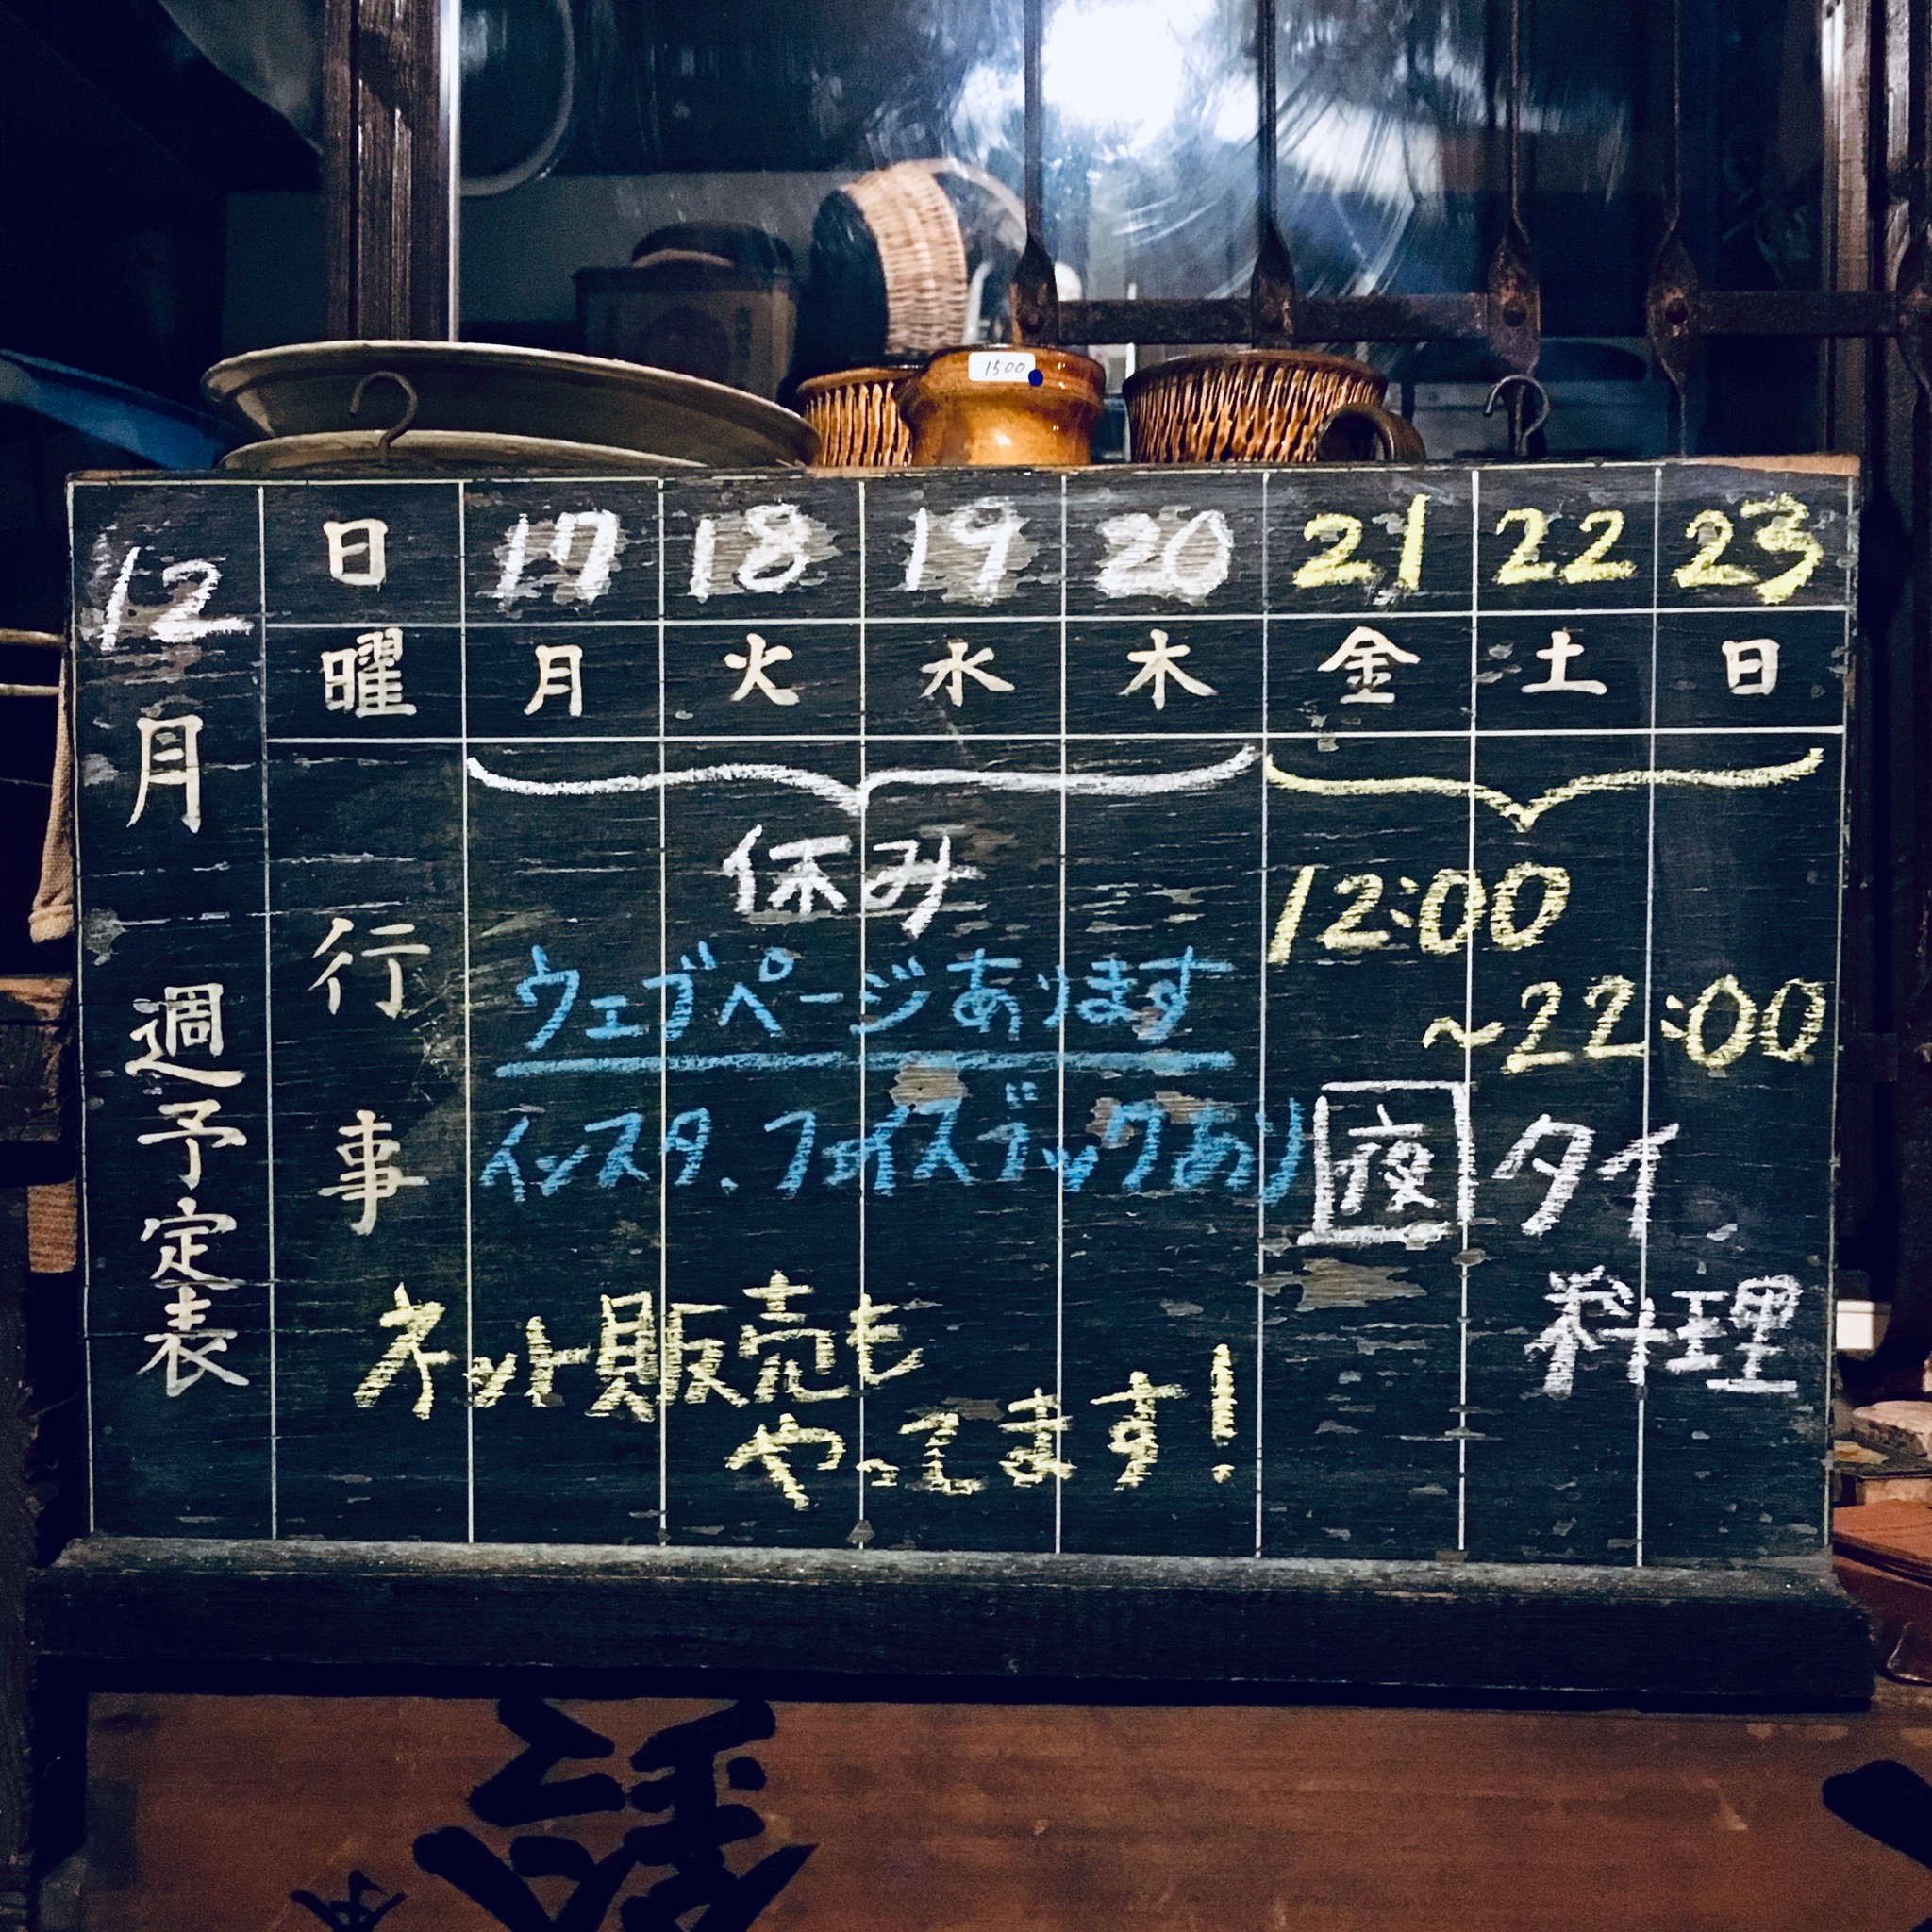 1500
12月
週予定表
日 17 18 19 20 21 22 23
曜 月 火 水 木 金 土 日
行事
休み
ウェブページあります
インスタ、フェイスブックあり
ネット販売も
やってます!
12:00
~22:00
夜 タイ
料理